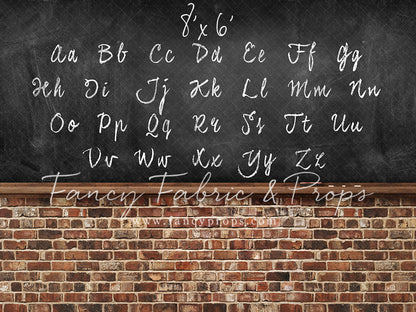 8'x 6'
Aa Bb Cc Dd Ee Ff Gg
Hh Ii Jj Kk Ll Mm Nn
Oo Pp Qq Rr Ss Tt Uu
Vv Ww Xx Yy Zz
Fancy Fabric & Props
www.fancyprops.com